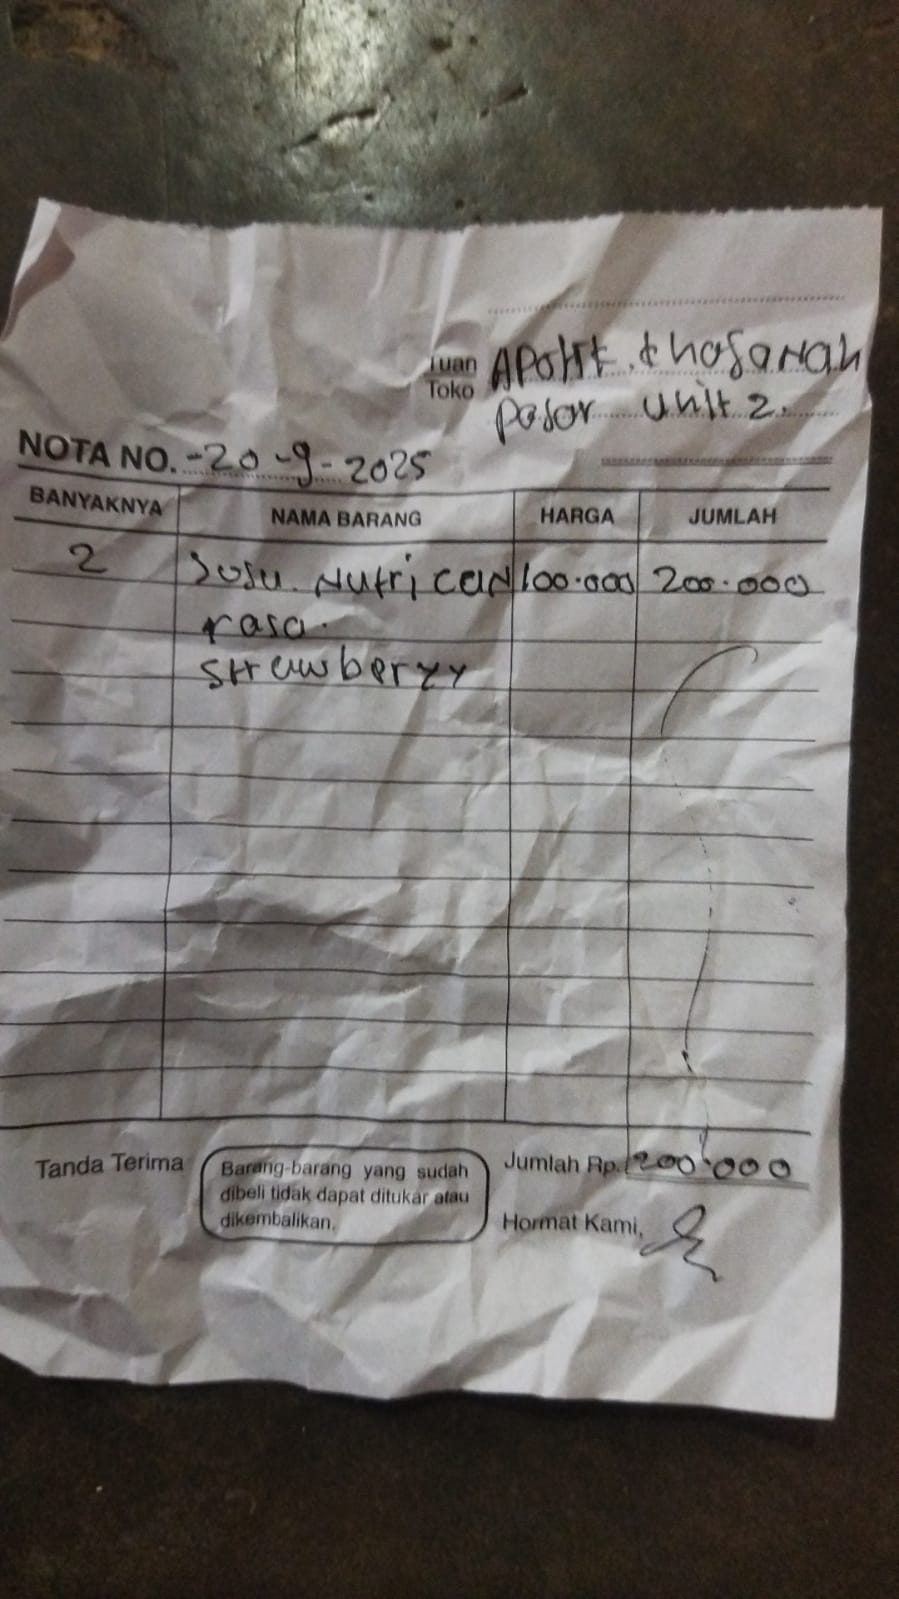 Tuan
Toko
Apotik khasanah
pasar unit 2.
NOTA NO. -20-9-2025
BANYAKNYA NAMA BARANG HARGA JUMLAH
2 Susu Nutrican 100.000 200.000
rasa.
strawberry
Tanda Terima
Barang-barang yang sudah
dibeli tidak dapat ditukar atau
dikembalikan.
Jumlah Rp. 200.000
Hormat Kami,